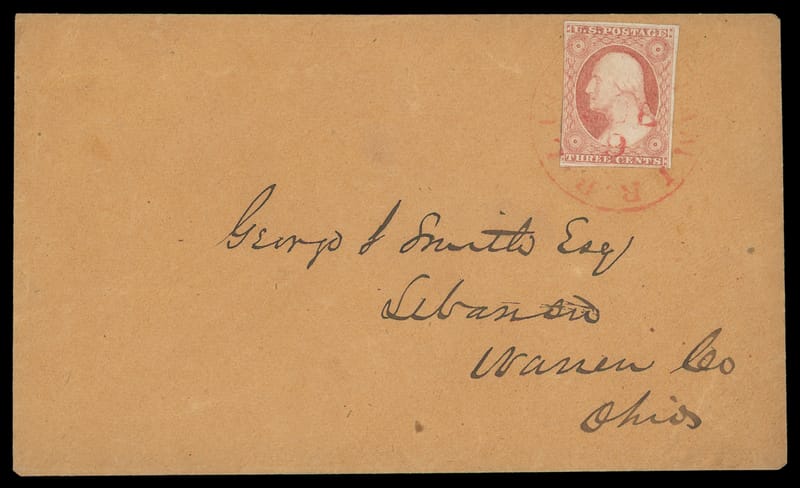 U.S. POSTAGE
THREE CENTS
9
George S Smith Esq
Lebanon
Warren Co
Ohio